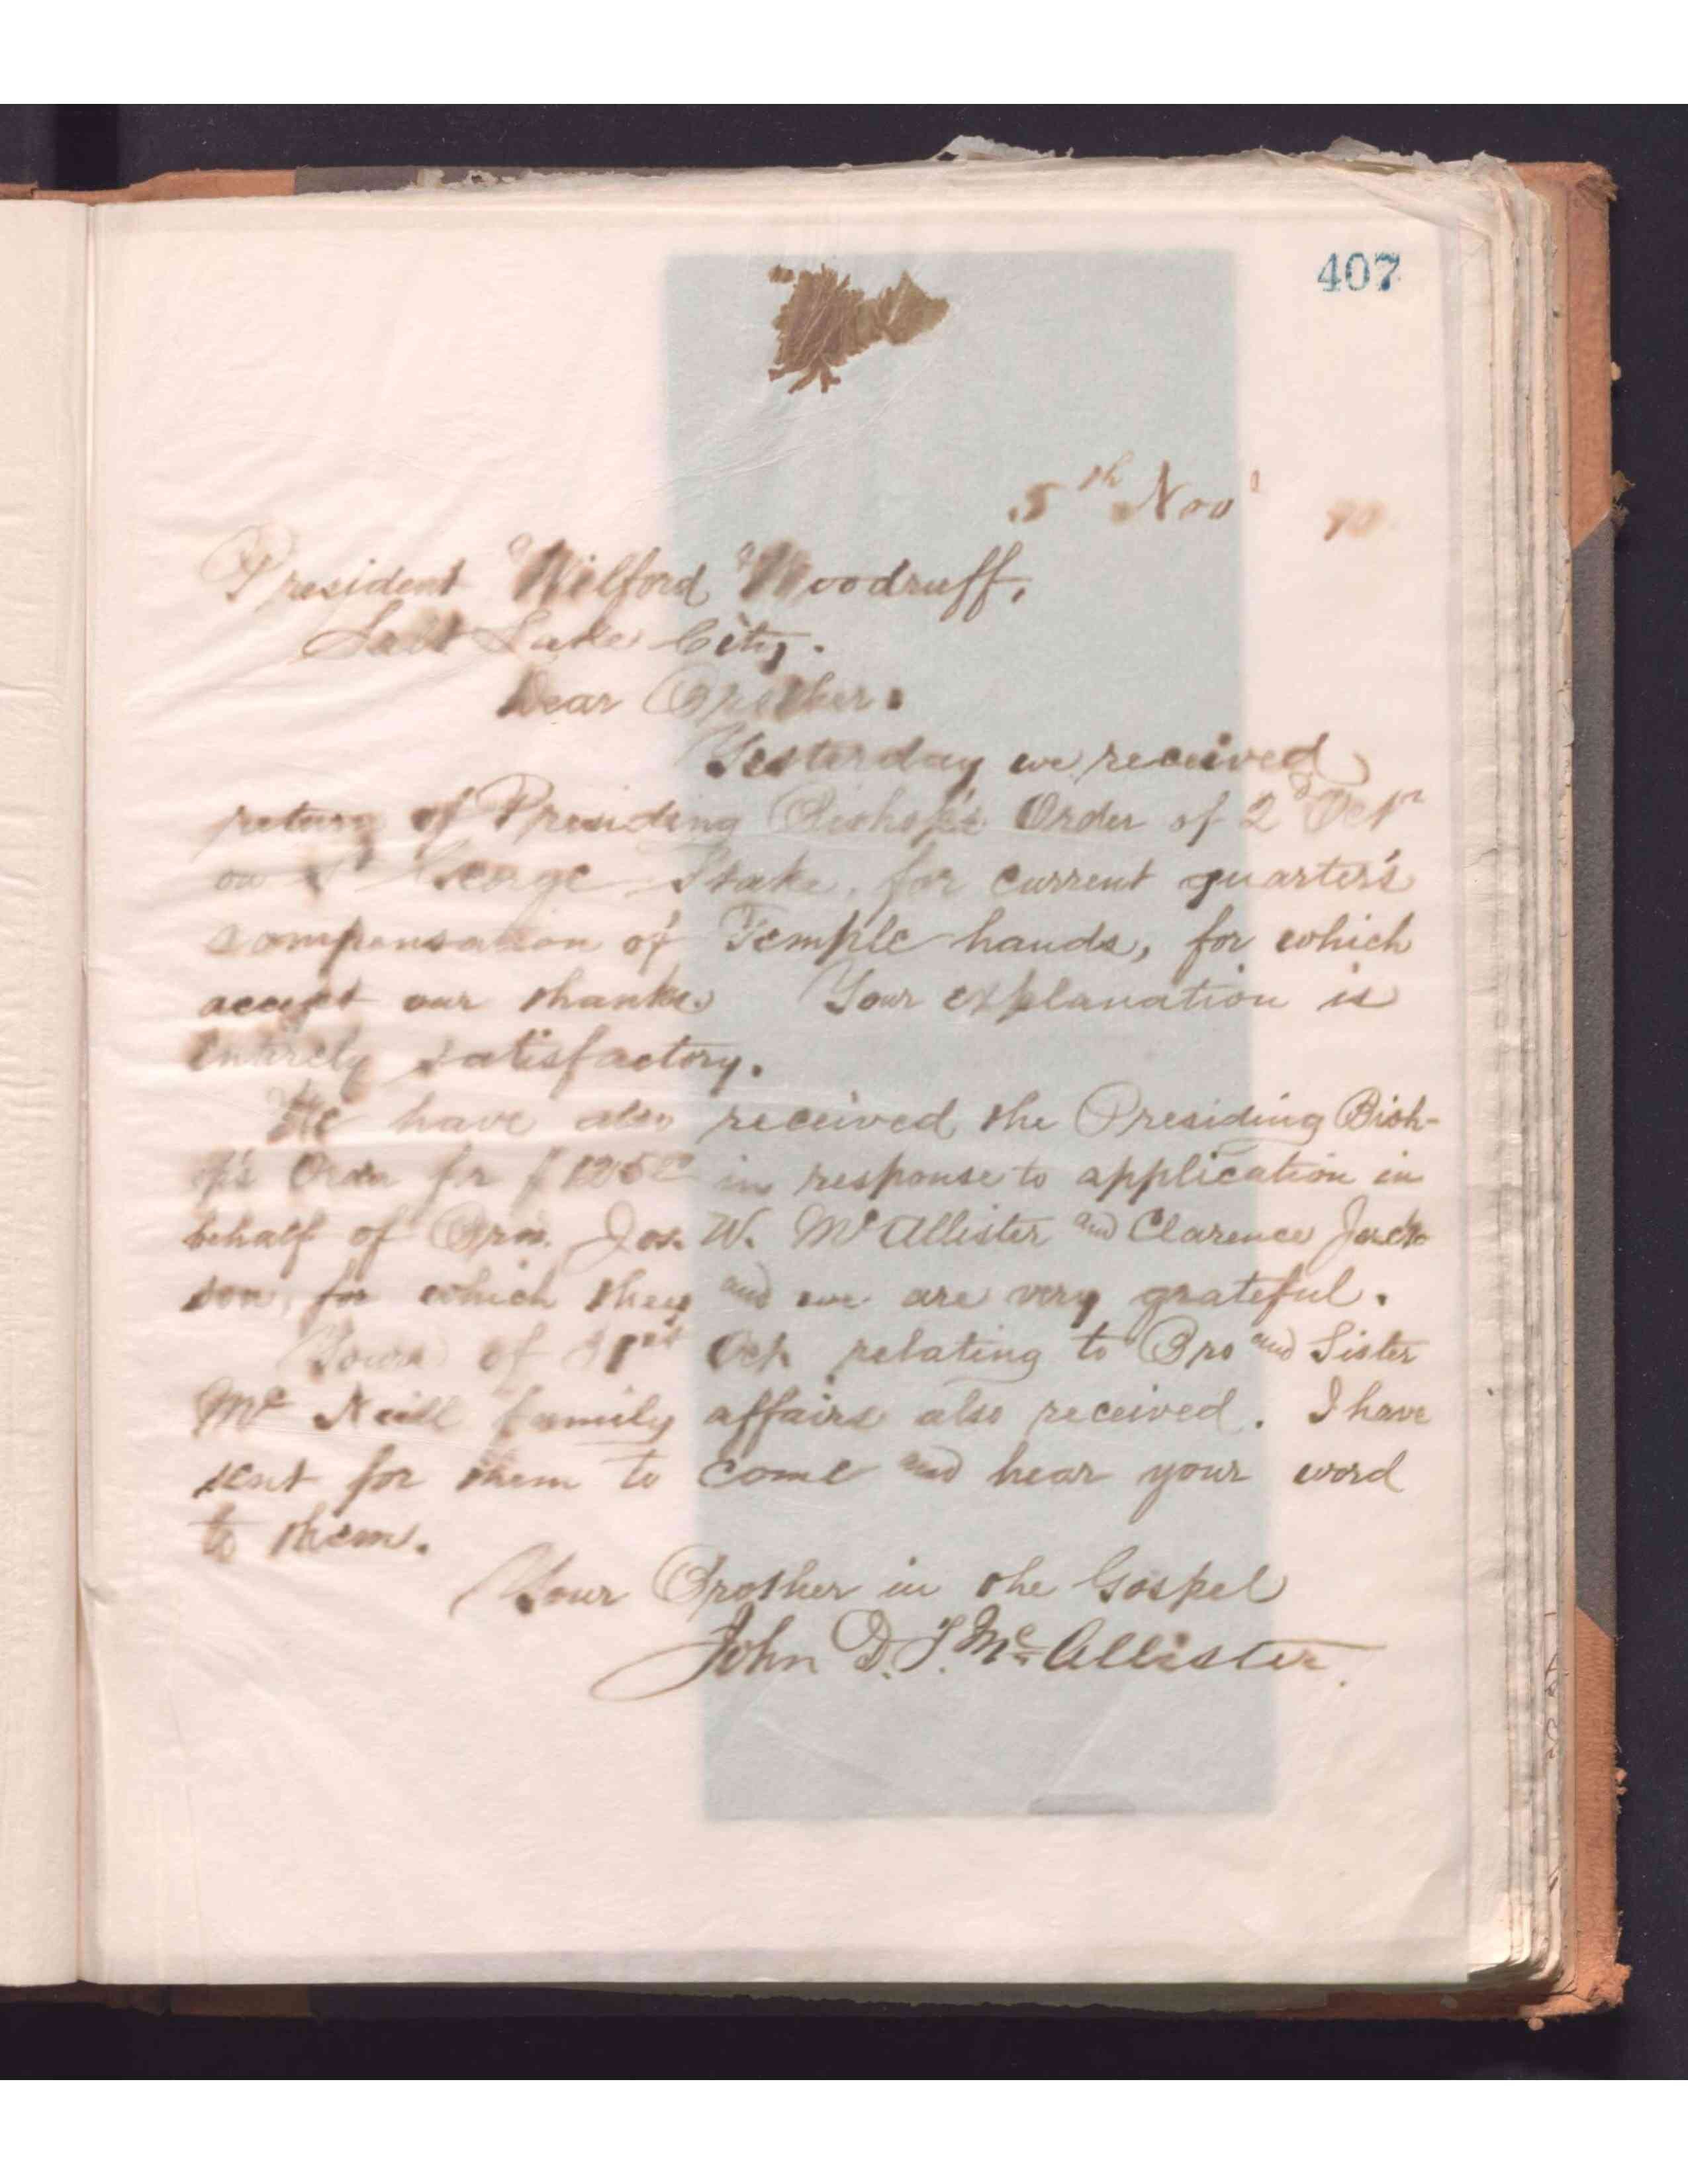 407
5th Nov 90
President Wilford Woodruff,
Salt Lake City.
Dear Brother.
Yesterday we received
return of Presiding Bishop's Order of 2d Oct
on St George Stake, for current quarter's
compensation of Temple hands, for which
accept our thanks. Your explanation is
entirely satisfactory.
We have also received the Presiding Bish-
op's Order for $
in response to application in
behalf of Bros. Jos. W. McAllister and Clarence Jack
son, for which they and we are very grateful.
Yours of 31st Oct. relating to Bro and Sister
Mc Neill family affairs also received. I have
sent for them to come and hear your word
to them.
Your Brother in the Gospel
John D. T. McAllister.